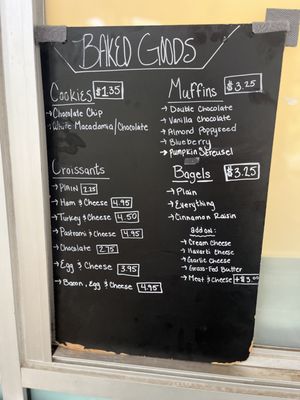 BAKED GOODS
Cookies $1.35
→ Chocolate Chip
→ White Macadamia/Chocolate
Muffins $3.25
→ Double Chocolate
→ Vanilla Chocolate
→ Almond Poppyseed
→ Blueberry
→ Pumpkin Streusel
Croissants
→ PLAIN 2.25
→ Ham & Cheese 4.95
→ Turkey & Cheese 4.50
→ Pastrami & Cheese 4.95
→ Chocolate 2.75
→ Egg & Cheese 3.95
→ Bacon, Egg & Cheese 4.95
Bagels $3.25
→ Plain
→ Everything
→ Cinnamon Raisin
add on:
→ Cream Cheese
→ Havarti Cheese
→ Garlic Cheese
→ Grass-Fed Butter
→ Meat & Cheese +$3.00